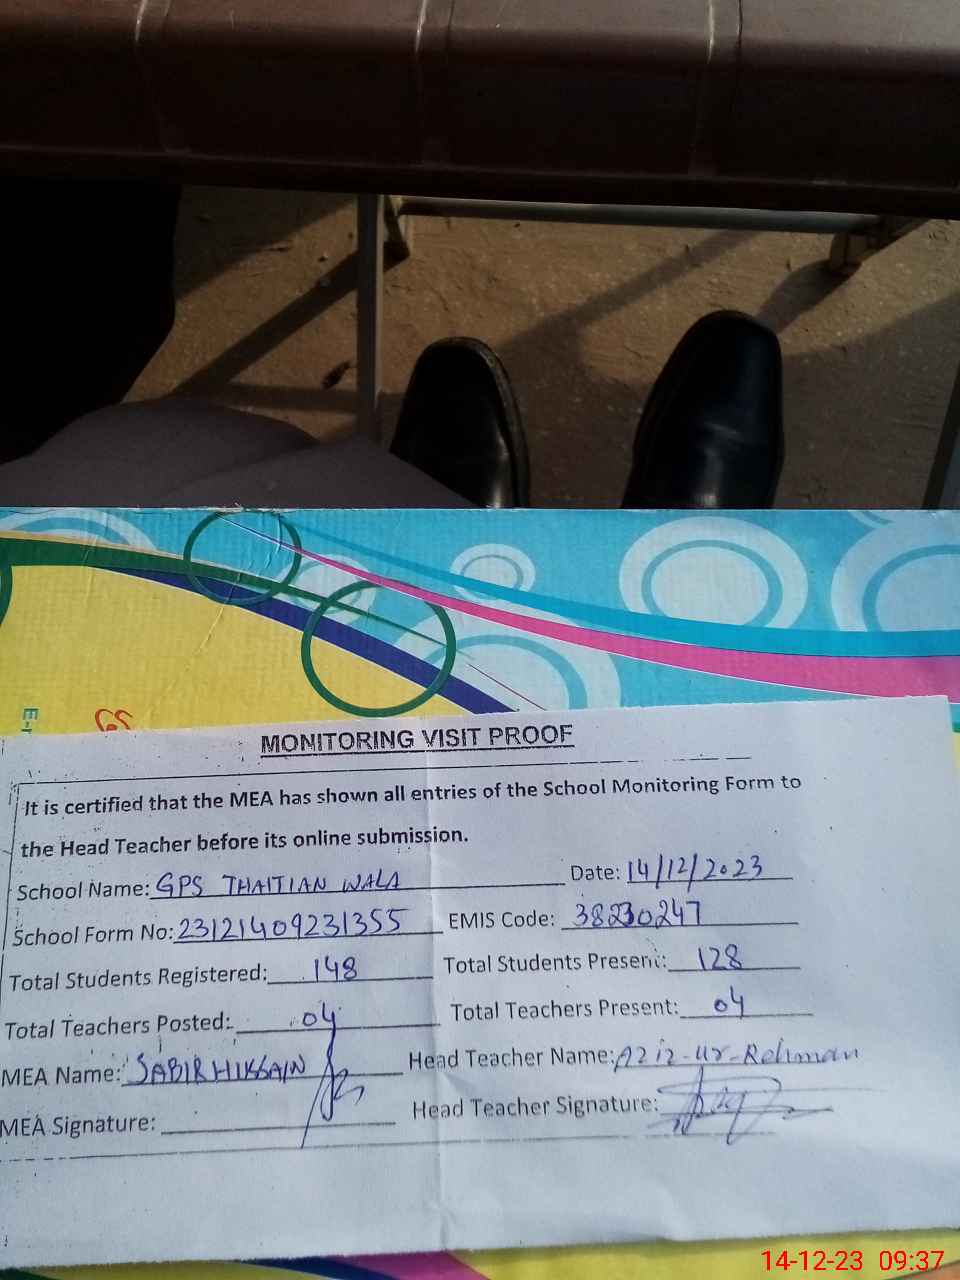 E-
GS
MONITORING VISIT PROOF
It is certified that the MEA has shown all entries of the School Monitoring Form to
the Head Teacher before its online submission.
School Name: GPS THAITIAN WALA Date: 14/12/2023
School Form No: 23121409231355 EMIS Code: 38230247
Total Students Registered: 148 Total Students Present: 128
Total Teachers Posted: 04 Total Teachers Present: 04
MEA Name: SABIR HUSSAIN Head Teacher Name: Aziz-ur-Rehman
MEA Signature: Head Teacher Signature:
14-12-23 09:37